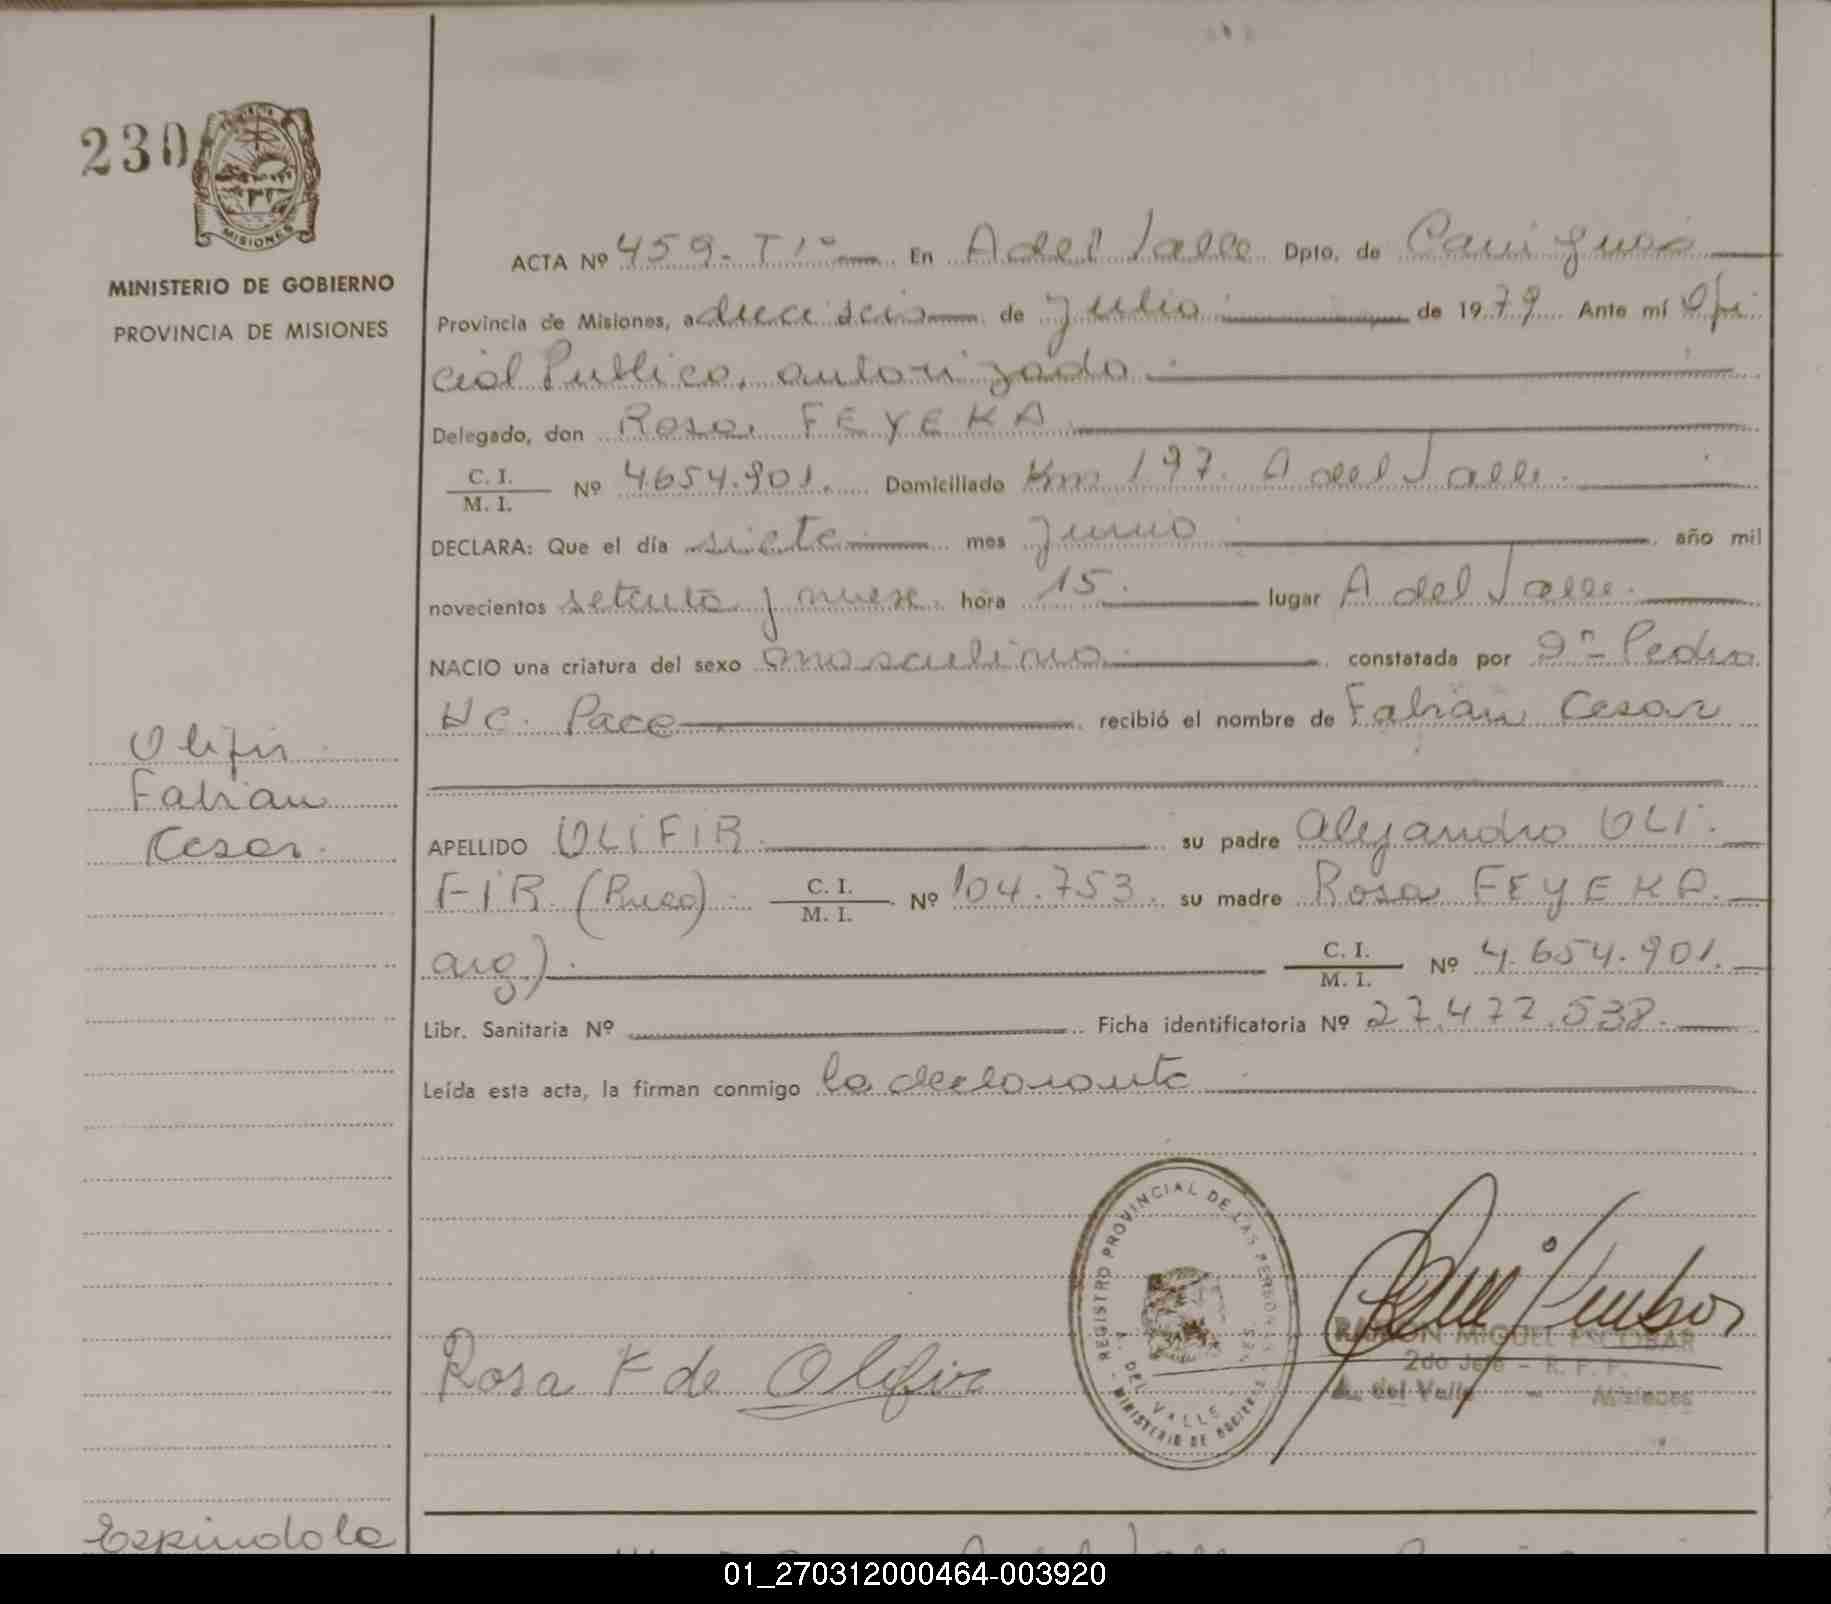 230
MISIONES
MINISTERIO DE GOBIERNO
PROVINCIA DE MISIONES
ACTA Nº 459 - T 1º En A del Valle Dpto. de Cainguas
Provincia de Misiones, a dieciseis de Julio de 1979 Ante mí Ofi
cial Publico, autorizado
Delegado, don Rosa FEYEKA
C. I.
M. I. Nº 4654.901. Domiciliado Km 197. A del Valle.
DECLARA: Que el día siete mes Junio año mil
novecientos setenta y nueve hora 15. lugar A del Valle.
NACIO una criatura del sexo masculino constatada por Dn - Pedro
Pace recibió el nombre de Fabian Cesar
Olifir
Fabian
Cesar.
APELLIDO OLIFIR su padre Alejandro OLI-
FIR (Ruso) C. I.
M. I. Nº 104.753. su madre Rosa FEYEKA
arg) C. I.
M. I. Nº 4.654.901.
Libr. Sanitaria Nº Ficha identificatoria Nº 27.477.538.
Leída esta acta, la firman conmigo la declarante
REGISTRO PROVINCIAL DE LAS PERSONAS
A. DEL VALLE
MINISTERIO DE
Rosa F de Olifir
RAMON MIGUEL ESCOBAR
2do Jefe - R. P. P.
A. del Valle - Misiones
Espindola
01_270312000464-003920